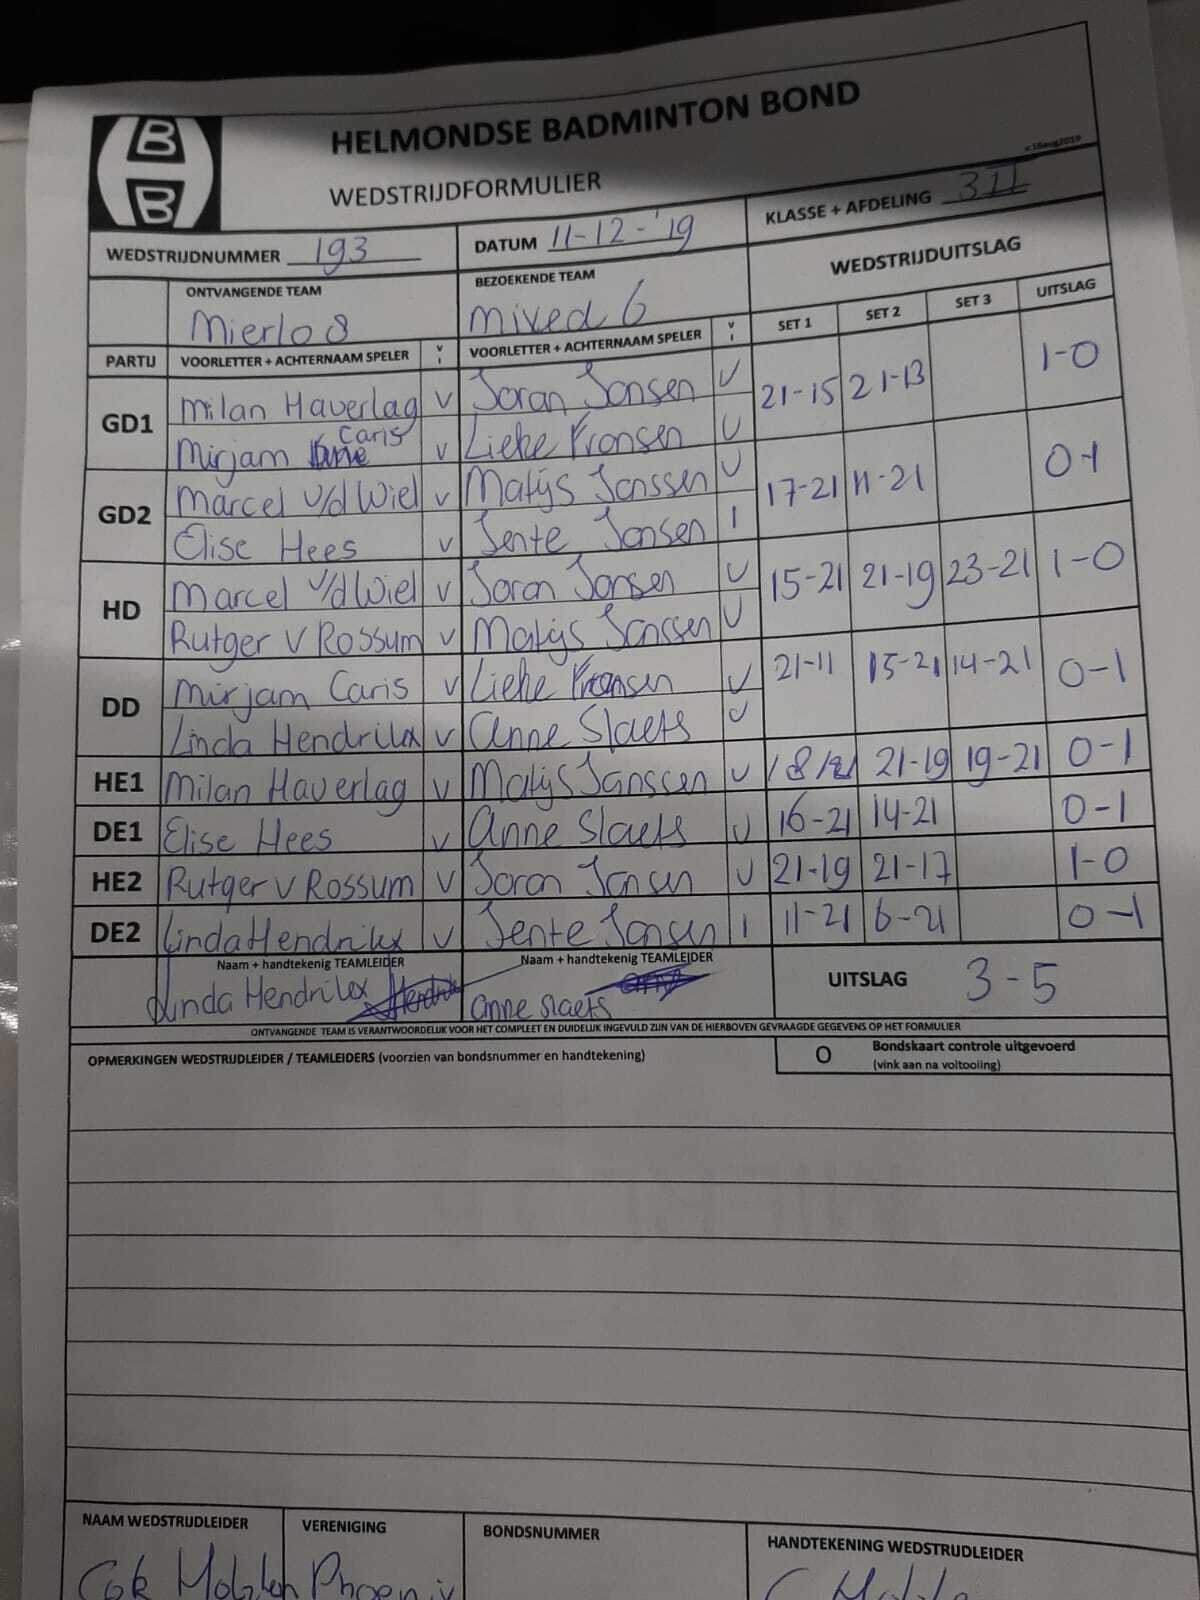 B B
HELMONDSE BADMINTON BOND
v.16aug2019
WEDSTRIJDFORMULIER
WEDSTRIJDNUMMER 193 DATUM 11-12-'19 KLASSE + AFDELING 3II
ONTVANGENDE TEAM BEZOEKENDE TEAM WEDSTRIJDUITSLAG
Mierlo 8 mixed 6
PARTIJ VOORLETTER + ACHTERNAAM SPELER V I VOORLETTER + ACHTERNAAM SPELER V I SET 1 SET 2 SET 3 UITSLAG
GD1 Milan Haverlag V Joran Jansen V 21-15 21-13 1-0
Mirjam Caris V Lieke Fransen V
GD2 Marcel v/d Wiel V Matijs Janssen V 17-21 11-21 0-1
Elise Hees V Jente Jansen I
HD Marcel v/d Wiel V Joran Jansen V 15-21 21-19 23-21 1-0
Rutger v Rossum V Matijs Janssen V
DD Mirjam Caris V Lieke Fransen V 21-11 15-21 14-21 0-1
Linda Hendrikx V Anne Slaets V
HE1 Milan Haverlag V Matijs Janssen V 18/21 21-19 19-21 0-1
DE1 Elise Hees V Anne Slaets V 16-21 14-21 0-1
HE2 Rutger v Rossum V Joran Jansen V 21-19 21-17 1-0
DE2 Linda Hendrikx V Jente Jansen I 11-21 6-21 0-1
Naam + handtekenig TEAMLEIDER Naam + handtekenig TEAMLEIDER
Linda Hendrikx Anne Slaets UITSLAG 3-5
ONTVANGENDE TEAM IS VERANTWOORDELIJK VOOR HET COMPLEET EN DUIDELIJK INGEVULD ZIJN VAN DE HIERBOVEN GEVRAAGDE GEGEVENS OP HET FORMULIER
OPMERKINGEN WEDSTRIJDLEIDER / TEAMLEIDERS (voorzien van bondsnummer en handtekening)
O Bondskaart controle uitgevoerd
(vink aan na voltooiing)
NAAM WEDSTRIJDLEIDER VERENIGING BONDSNUMMER HANDTEKENING WEDSTRIJDLEIDER
Phoenix